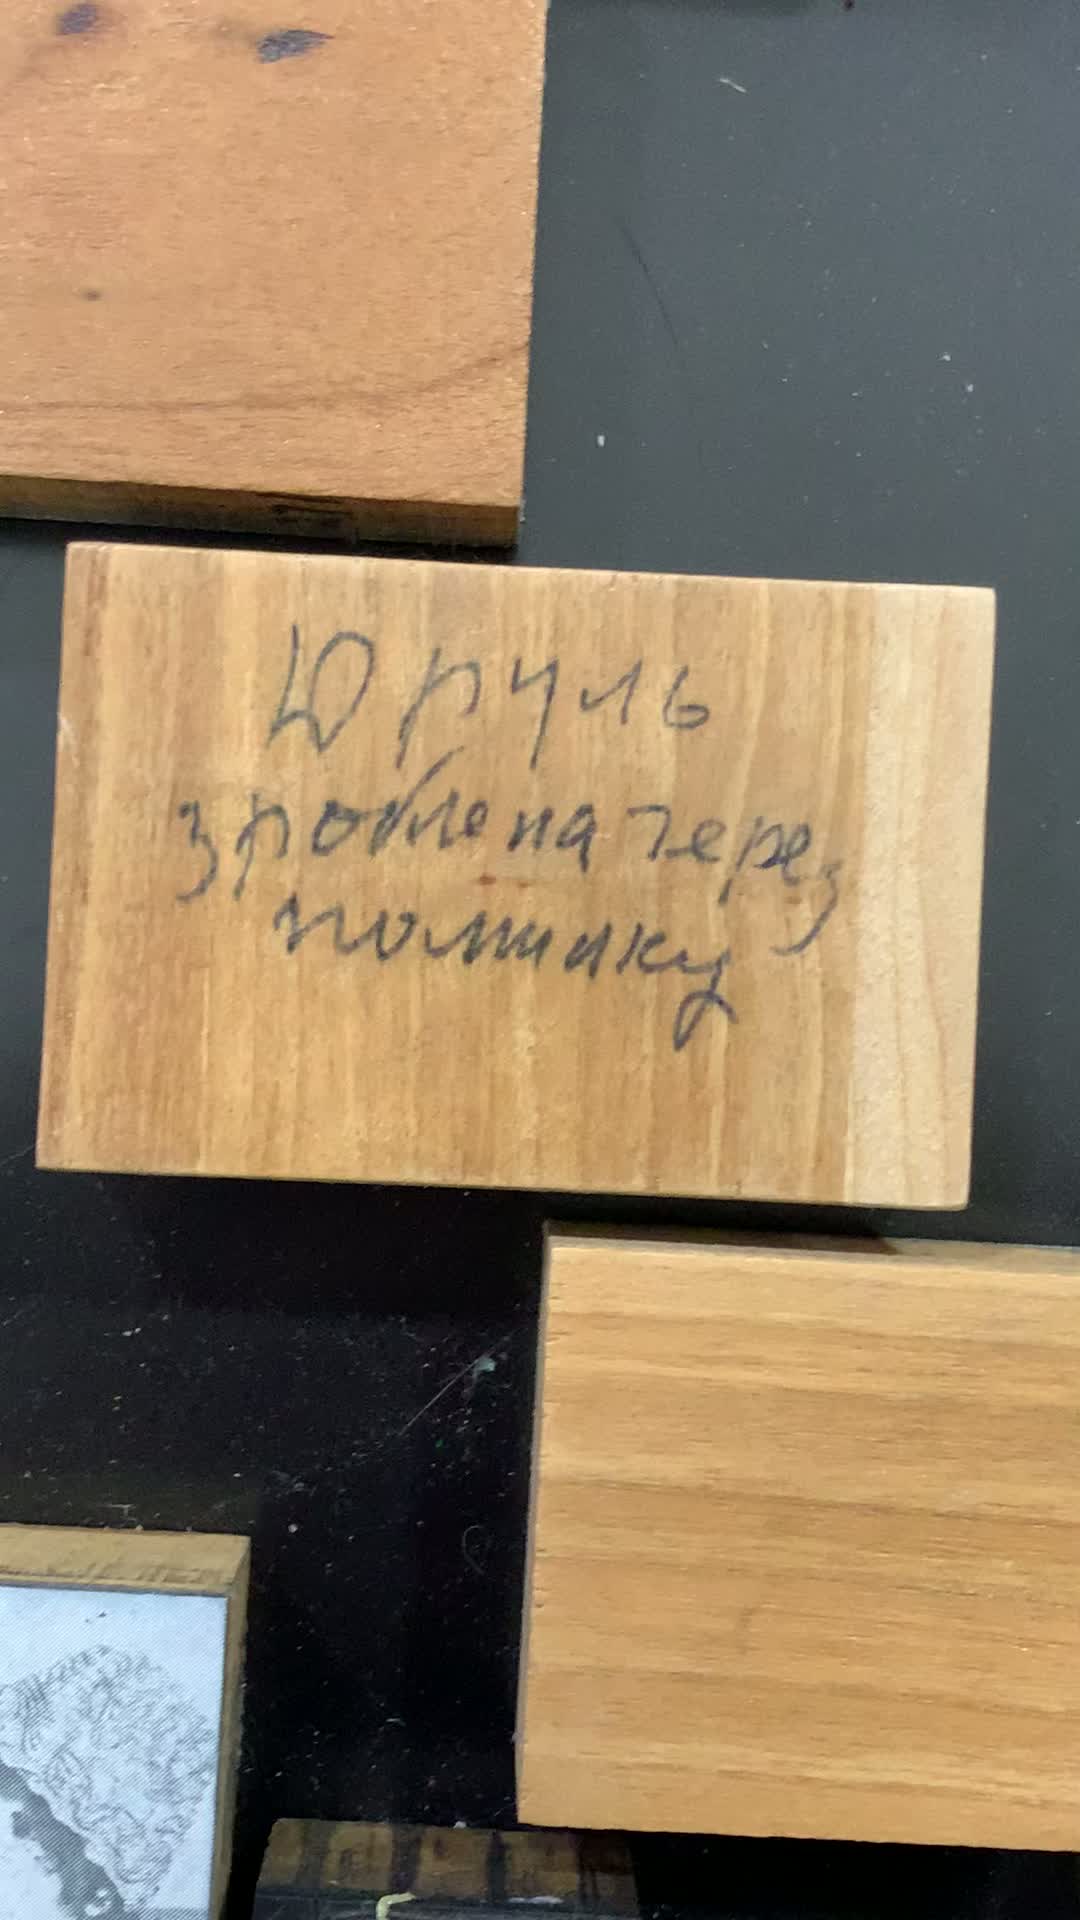 Юруль
зроблена через
помилку